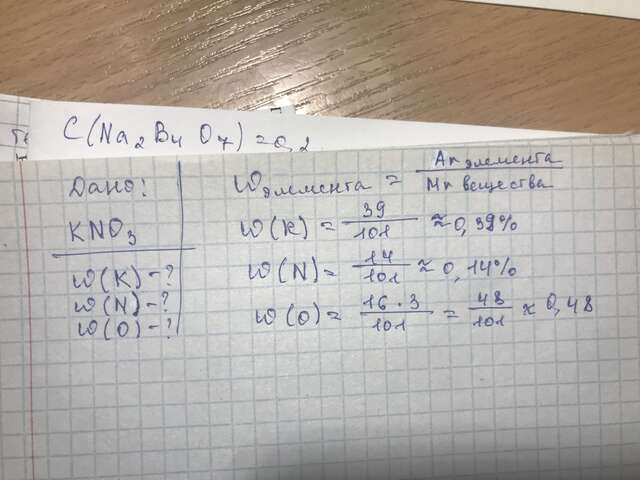 C(Na₂B₄O₇)=0,2
Дано:
KNO₃
ω(K)-?
ω(N)-?
ω(O)-?
ωэлемента = Ar элемента / Mr вещества
ω(K) = 39/101 ≈ 0,39%
ω(N) = 14/101 ≈ 0,14%
ω(O) = 16·3/101 = 48/101 ≈ 0,48